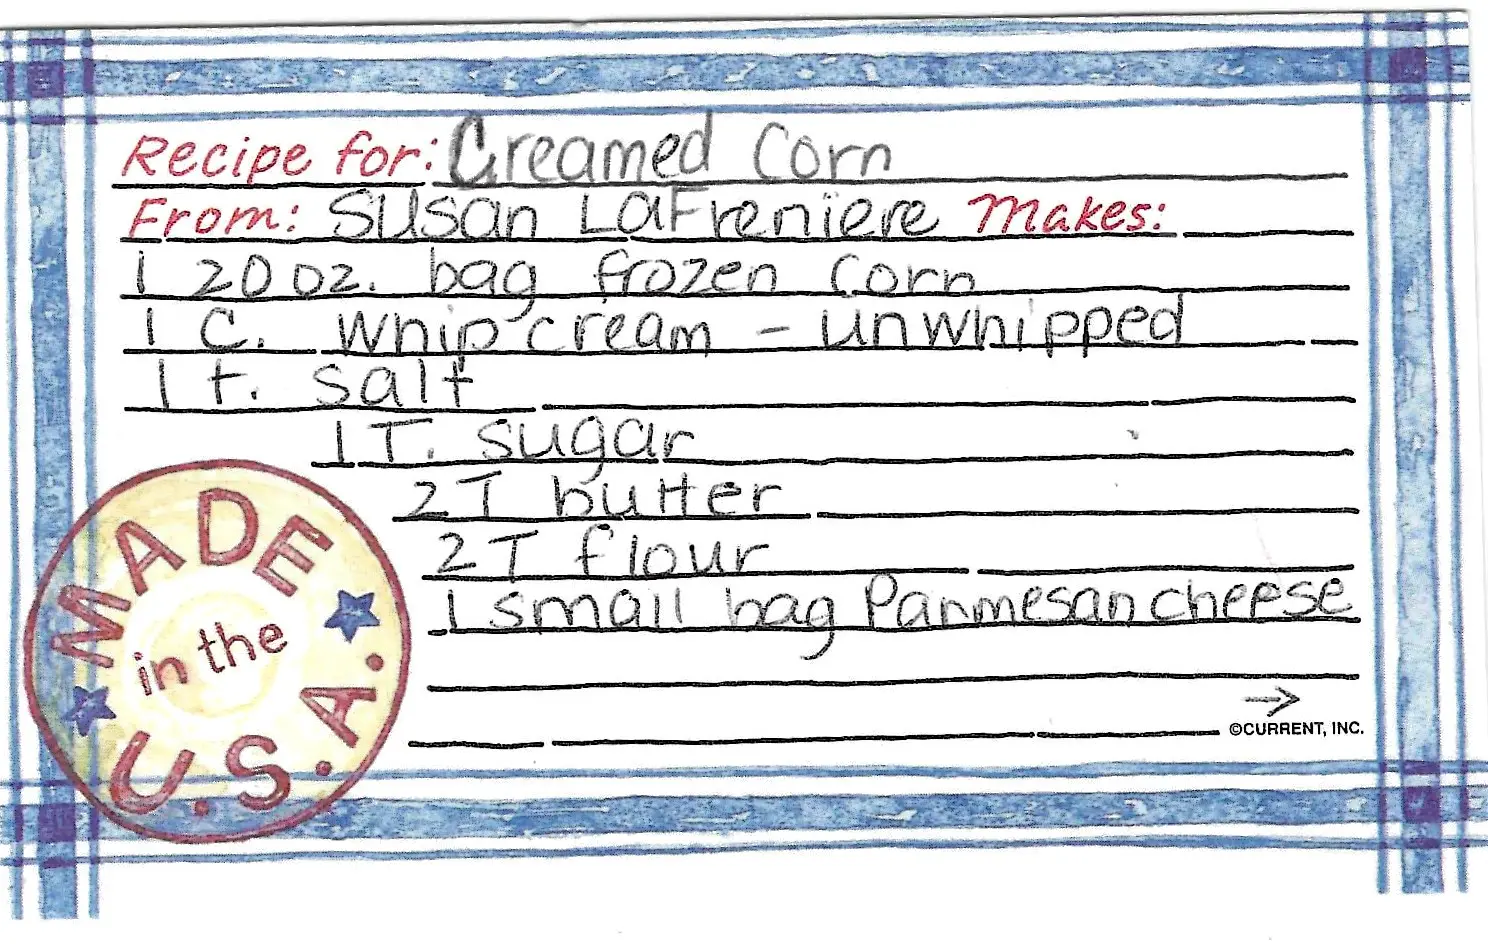 Recipe for: Creamed Corn
From: Susan LaFreniere Makes:
1 20 oz. bag frozen corn
1 C. whip cream - unwhipped
1 t. salt
1 T. sugar
2 T butter
2 T flour
1 small bag Parmesan cheese
→
©CURRENT, INC.
MADE
in the
U.S.A.